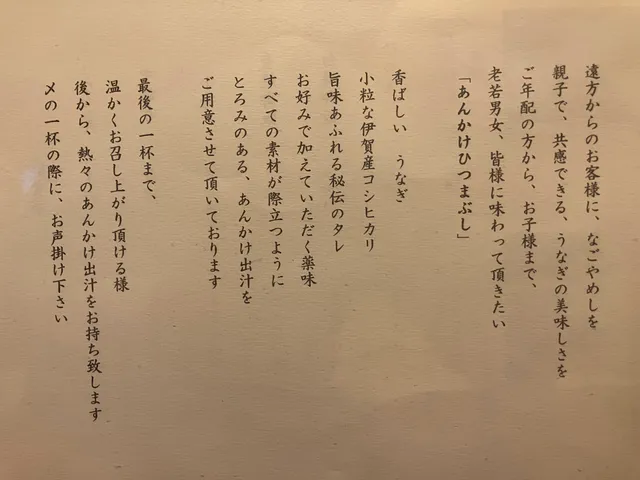 遠方からのお客様に、なごやめしを
親子で、共感できる、うなぎの美味しさを
ご年配の方から、お子様まで、
老若男女、皆様に味わって頂きたい
「あんかけひつまぶし」
香ばしい　うなぎ
小粒な伊賀産コシヒカリ
旨味あふれる秘伝のタレ
お好みで加えていただく薬味
すべての素材が際立つように
とろみのある、あんかけ出汁を
ご用意させて頂いております
最後の一杯まで、
温かくお召し上がり頂ける様
後から、熱々のあんかけ出汁をお持ち致します
〆の一杯の際に、お声掛け下さい